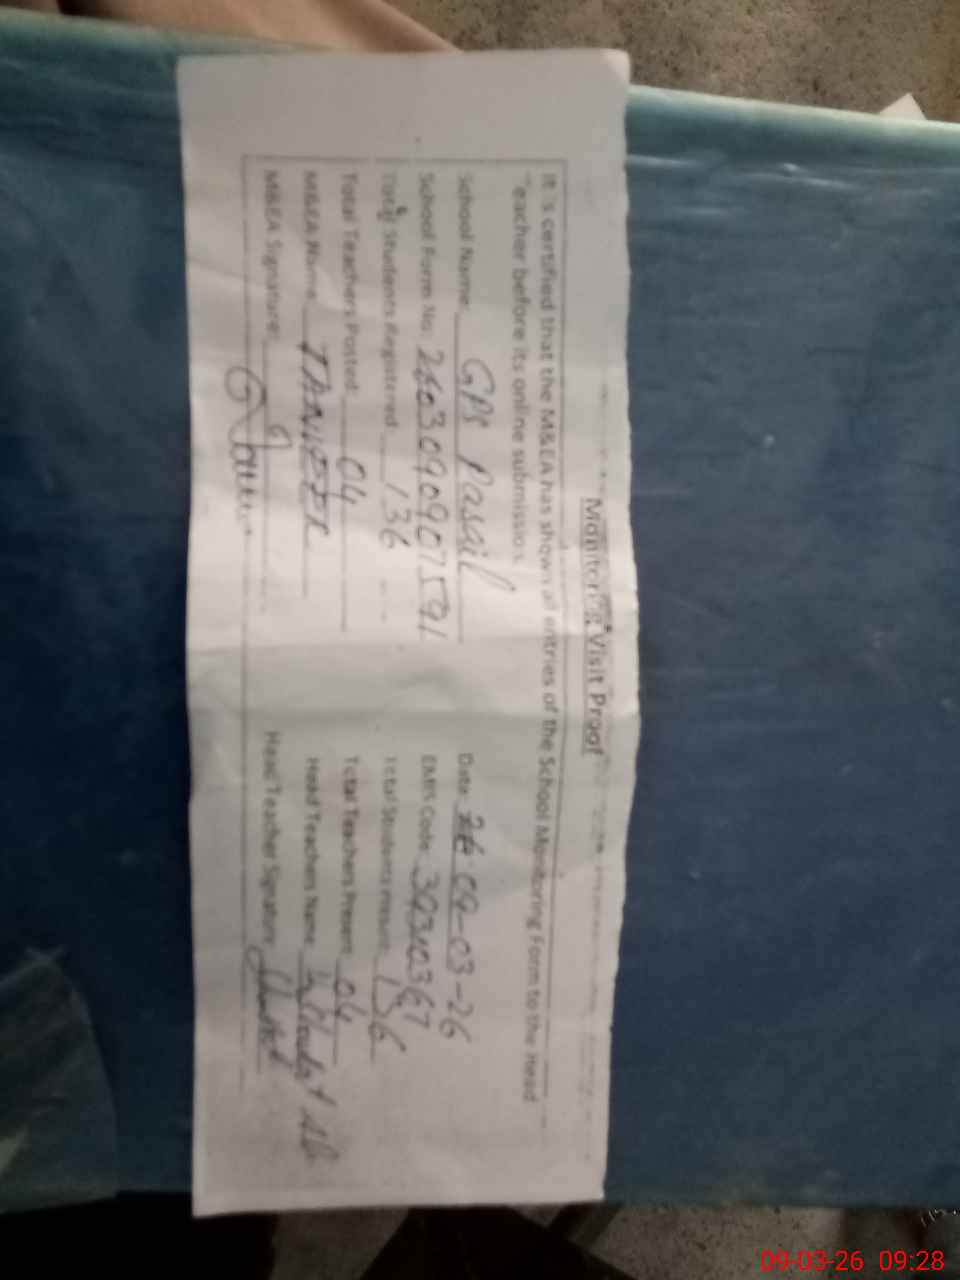 Monitoring Visit Proof
It is certified that the M&EA has shown all entries of the School Monitoring Form to the Head
Teacher before its online submission.
School Name: GPS Pasail Date: 09-03-26
School Form No: 2603090907591 EMIS Code:
Total Students Registered 136 Total Students Present 136
Total Teachers Posted: 04 Total Teachers Present 04
M&EA Name: TANVEER Head Teachers Name
M&EA Signature: Head Teacher Signature
09-03-26 09:28